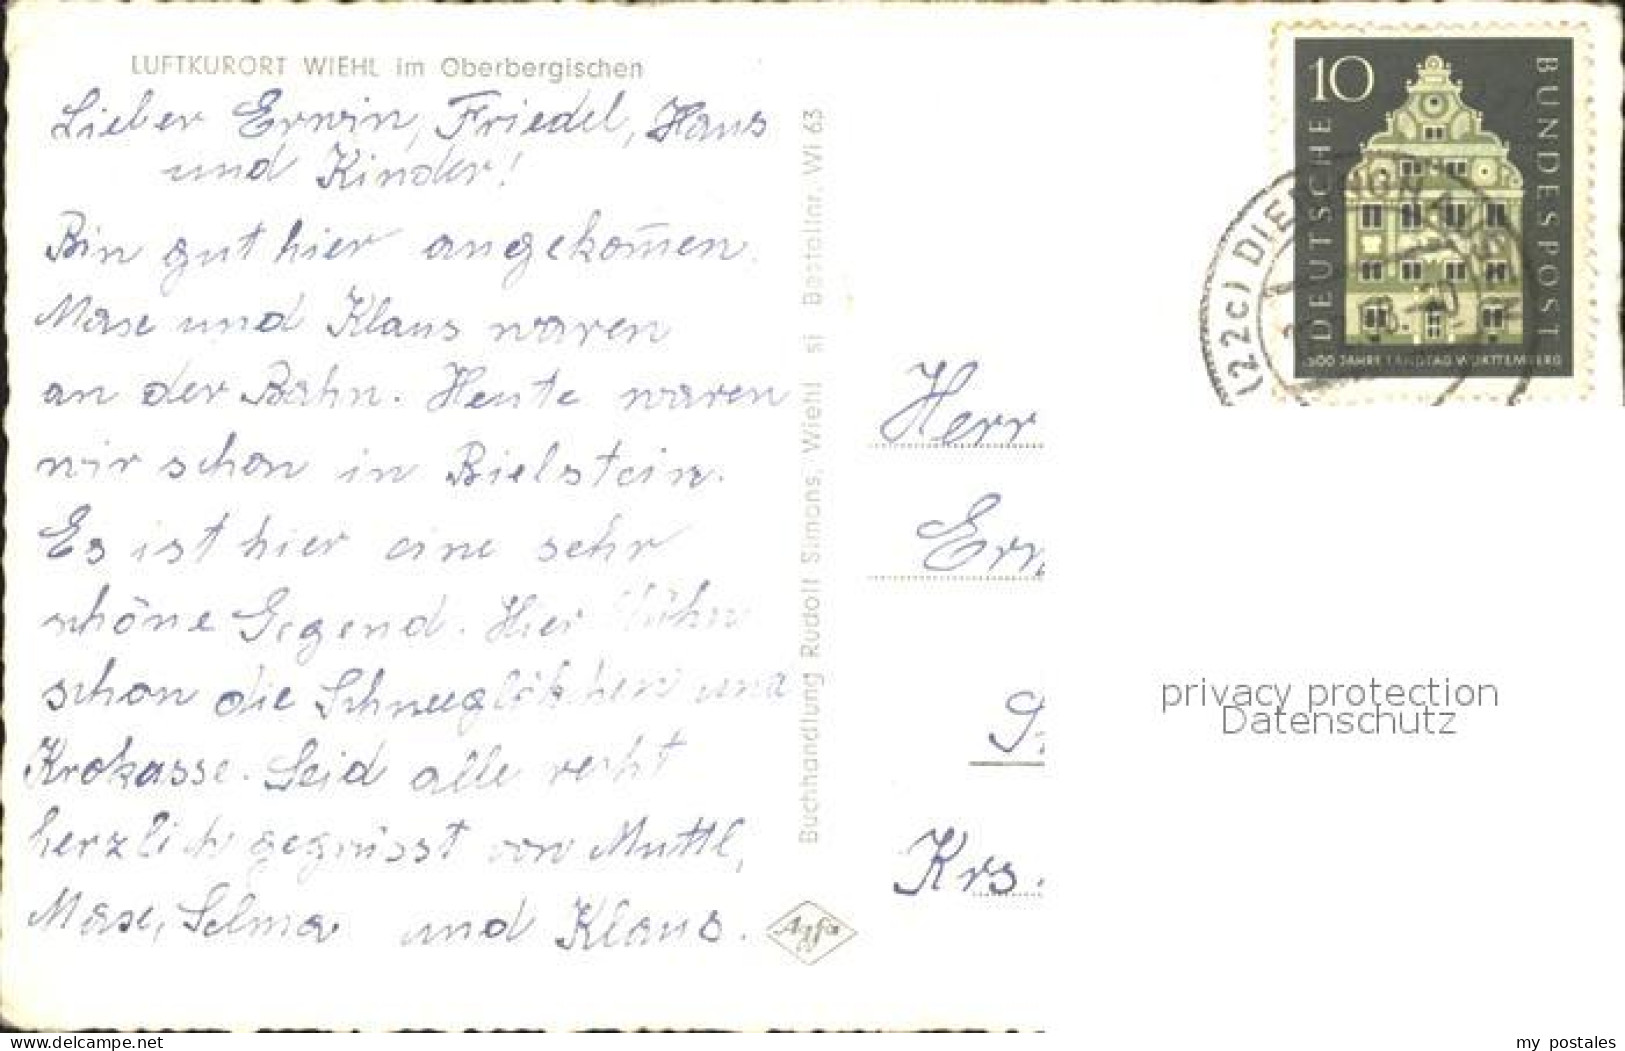 LUFTKURORT WIEHL im Oberbergischen
Lieber Erwin, Friedel, Hans
und Kinder!
Bin gut hier angekom̄en.
Maxe und Klaus waren
an der Bahn. Heute waren
wir schon in Bielstein.
Es ist hier eine sehr
schöne Gegend. Hier blühn
schon die Schneeglökchen und
Krokasse. Seid alle recht
herzlich gegrüsst von Muttl,
Maxe, Selma und Klaus.
Buchhandlung Rudolf Simons, Wiehl si Bestellnr. Wi 63
Agfa
10
DEUTSCHE
BUNDESPOST
500 JAHRE LANDTAG WÜRTTEMBERG
(22c)
Herr
Krs.
privacy protection
Datenschutz
delcampe.net
my_postales